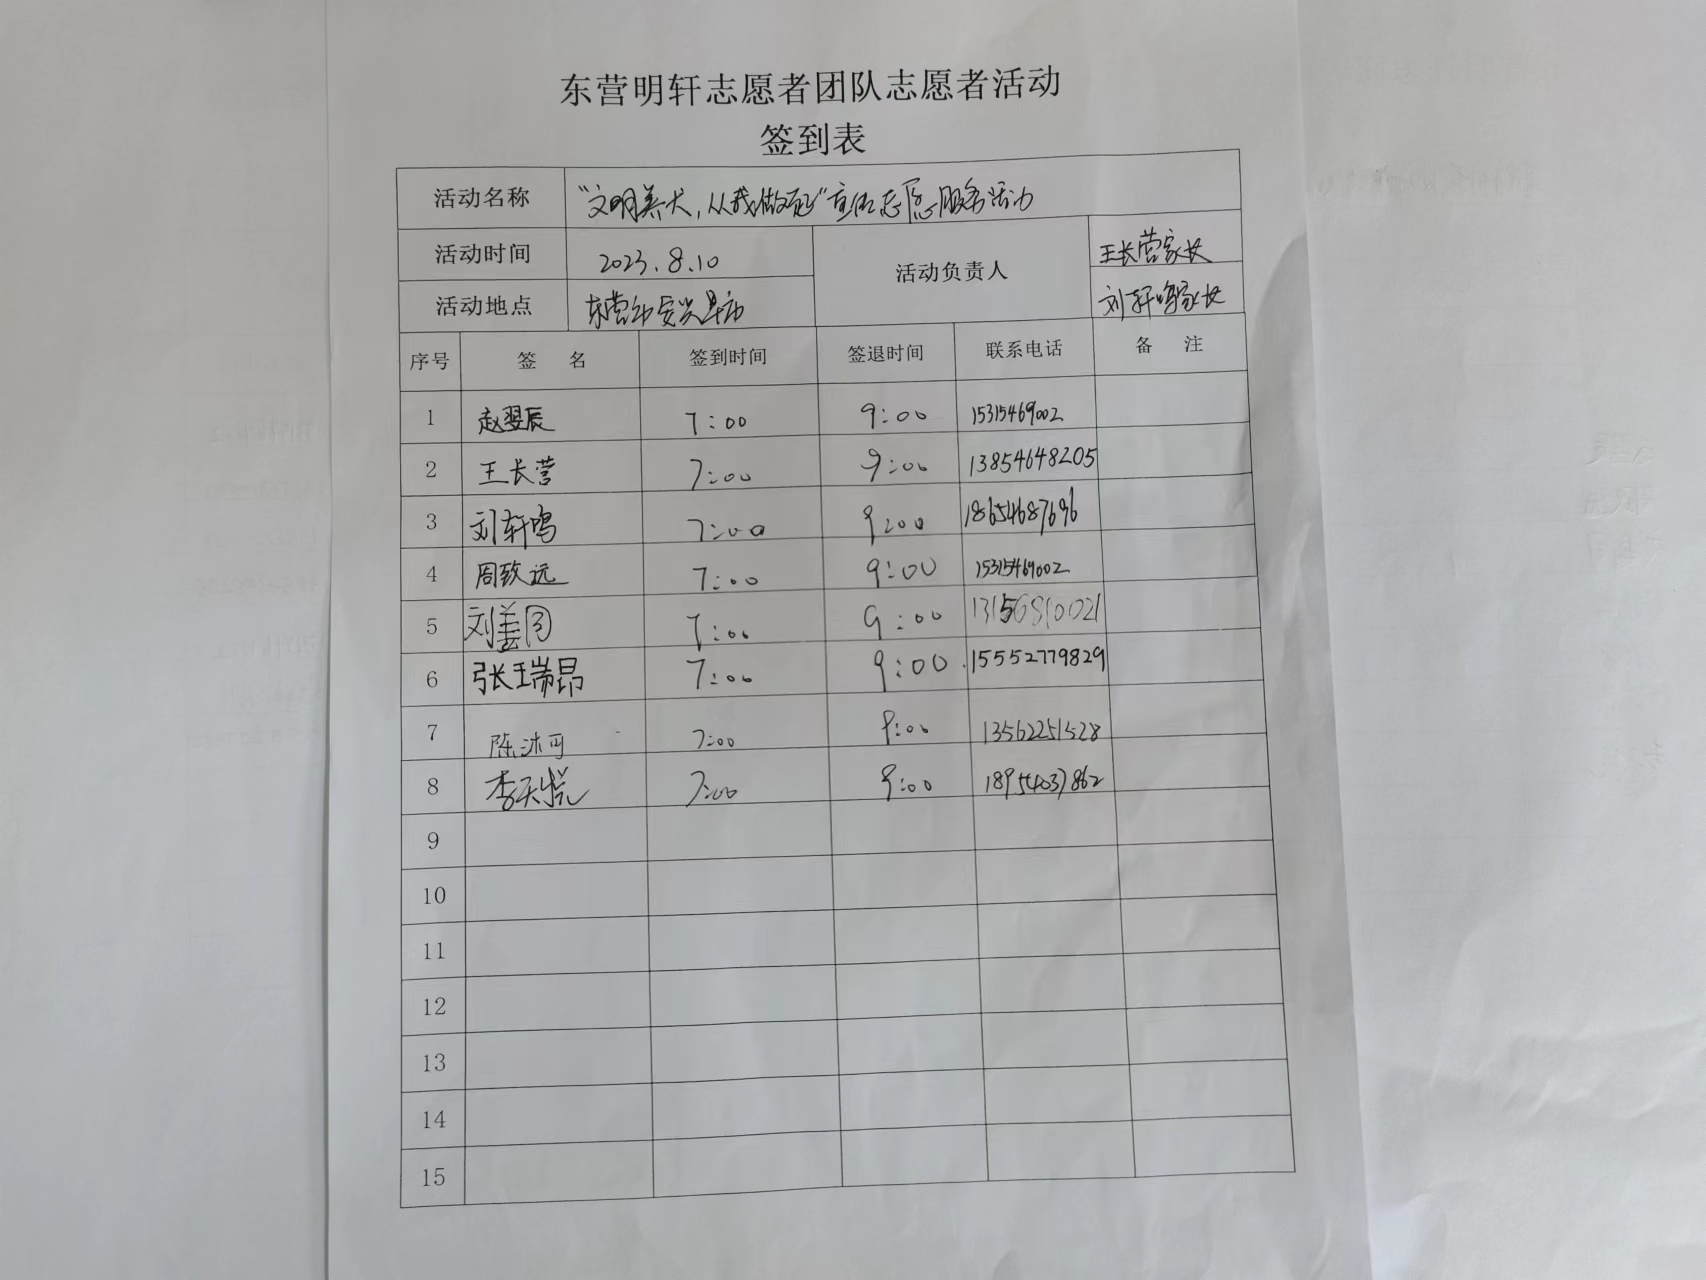 东营明轩志愿者团队志愿者活动
签到表
活动名称 "文明养犬,从我做起"宣传志愿服务活动
活动时间 2023.8.10 活动负责人 王长营家长
活动地点 东营市安兴早市 刘轩鸣家长
序号 签 名 签到时间 签退时间 联系电话 备 注
1 赵翌辰 7:00 9:00 15315469002
2 王长营 7:00 9:00 13854648205
3 刘轩鸣 7:00 9:00 18654687696
4 周致远 7:00 9:00 15315469002
5 刘善同 7:00 9:00 13156810021
6 张瑞昂 7:00 9:00 15552779829
7 陈沐可 7:00 9:00 13562251528
8 李天悦 7:00 9:00 18954037862
9
10
11
12
13
14
15